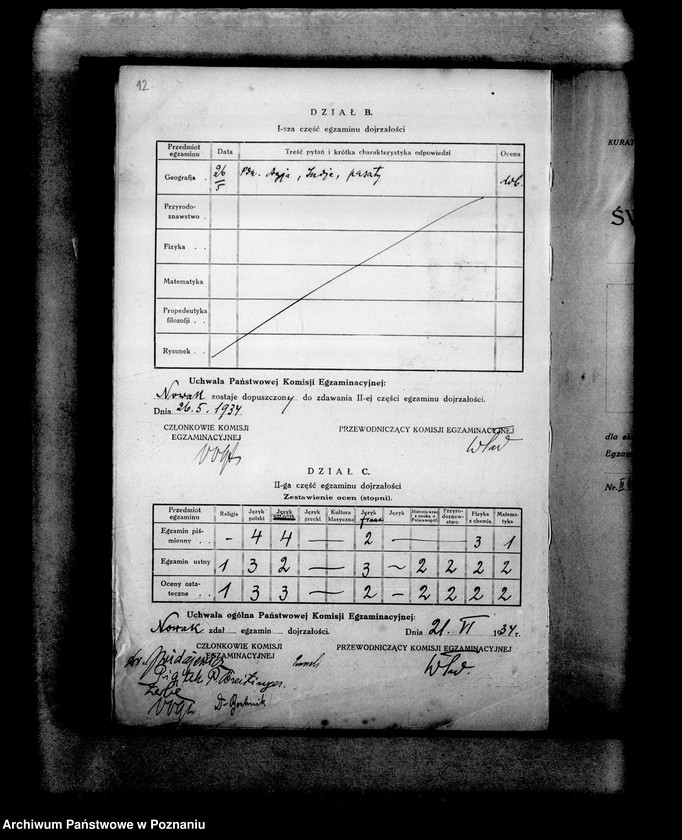 12
DZIAŁ B.
I-sza część egzaminu dojrzałości
Przedmiot egzaminu Data Treść pytań i krótka charakterystyka odpowiedzi Ocena
Geografja . 26/5 Azja, Indje, pasaty db.
Przyrodo-
znawstwo .
Fizyka . .
Matematyka
Propedeutyka
filozofji . .
Rysunek . .
Uchwała Państwowej Komisji Egzaminacyjnej:
Nowak zostaje dopuszczony do zdawania II-ej części egzaminu dojrzałości.
Dnia 26.5.1934
CZŁONKOWIE KOMISJI
EGZAMINACYJNEJ
PRZEWODNICZĄCY KOMISJI EGZAMINACYJNEJ
DZIAŁ C.
II-ga część egzaminu dojrzałości
Zestawienie ocen (stopni).
Przedmiot egzaminu Religja Język polski Język Język grecki Kultura klasyczna Język franc Język Przyro-doznaw-stwo Fizyka z chemią Matema-tyka
Egzamin piś-
mienny . . - 4 4 — 2 — 3 1
Egzamin ustny 1 3 2 — 3 ~ 2 2 2 2
Oceny osta-
teczne . . 1 3 3 — 2 - 2 2 2 2
Uchwała ogólna Państwowej Komisji Egzaminacyjnej:
Nowak zdał egzamin dojrzałości. Dnia 21. VI 1934 r.
CZŁONKOWIE KOMISJI
EGZAMINACYJNEJ
PRZEWODNICZĄCY KOMISJI EGZAMINACYJNEJ
KURAT
ŚW
dla ek
Egzam
Nr. II
Archiwum Państwowe w Poznaniu